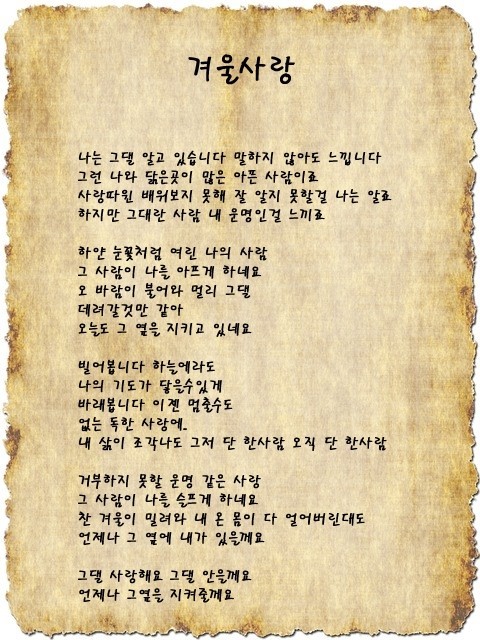 겨울사랑
나는 그댈 알고 있습니다 말하지 않아도 느낍니다
그런 나와 닮은곳이 많은 아픈 사람이죠
사랑따윈 배워보지 못해 잘 알지 못할걸 나는 알죠
하지만 그대란 사람 내 운명인걸 느끼죠
하얀 눈꽃처럼 여린 나의 사람
그 사람이 나를 아프게 하네요
오 바람이 불어와 멀리 그댈
데려갈것만 같아
오늘도 그 옆을 지키고 있네요
빌어봅니다 하늘에라도
나의 기도가 닿을수있게
바래봅니다 이젠 멈출수도
없는 독한 사랑에..
내 삶이 조각나도 그저 단 한사람 오직 단 한사람
거부하지 못할 운명 같은 사랑
그 사람이 나를 슬프게 하네요
찬 겨울이 밀려와 내 온 몸이 다 얼어버린대도
언제나 그 옆에 내가 있을께요
그댈 사랑해요 그댈 안을께요
언제나 그옆을 지켜줄께요